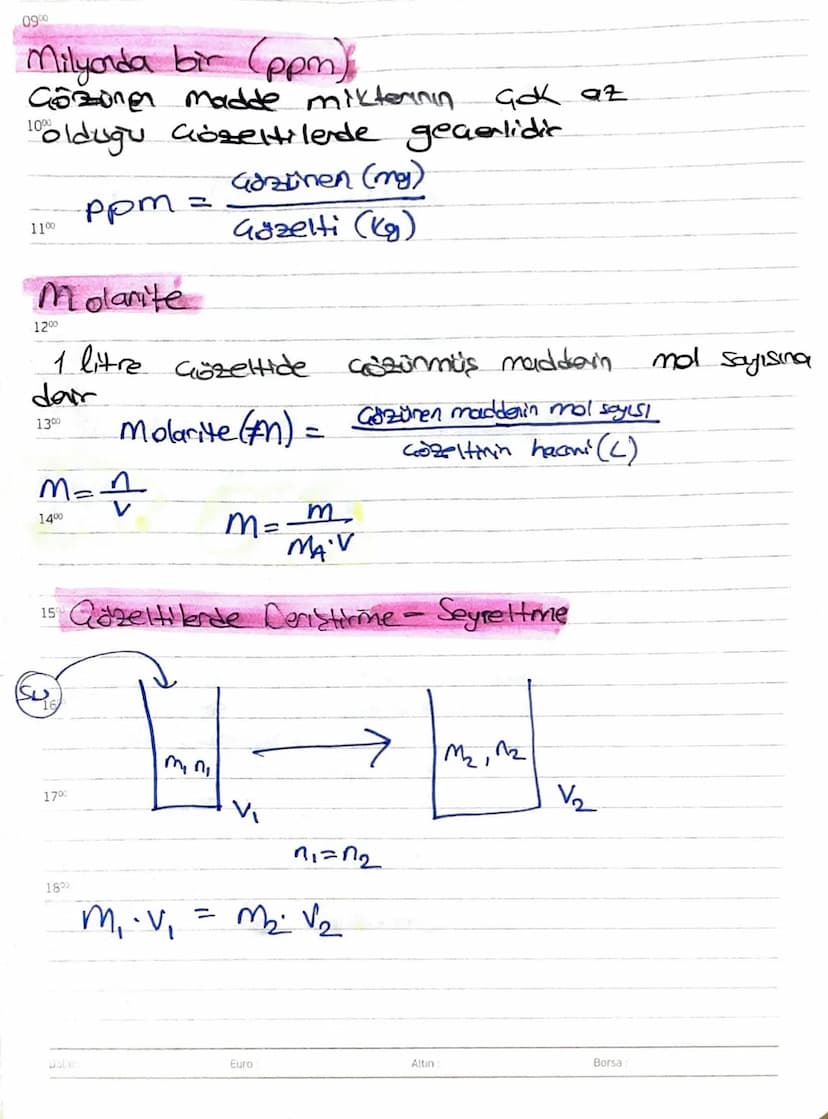 09⁰⁰
Milyonda bir (ppm)
Çözünen madde miktarının çok az
10⁰⁰
olduğu çözeltilerde geçerlidir
ppm = çözünen (mg) / çözelti (kg)
11⁰⁰
Molarite
12⁰⁰
1 litre çözeltide çözünmüş maddenin mol sayısına
denir
13⁰⁰
Molarite (M) = çözünen maddenin mol sayısı / çözeltinin hacmi (L)
M = n / V
14⁰⁰
M = m / MA · V
15⁰⁰
Çözeltilerde Deriştirme - Seyreltme
Su
16⁰⁰
M₁ n₁
M₂, n₂
17⁰⁰
V₁
V₂
n₁ = n₂
18⁰⁰
M₁ · V₁ = M₂ · V₂
Dolar:
Euro
Altın :
Borsa :